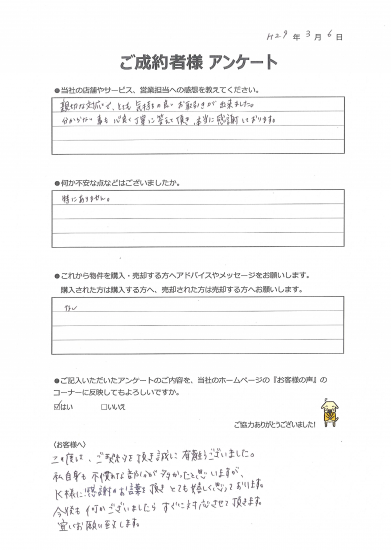 H29 年 3 月 6 日
ご成約者様 アンケート
●当社の店舗やサービス、営業担当への感想を教えてください。
親切な対応で、とても気持ちの良いお取引きが出来ました。
分からない事も心良く丁寧に答えて頂き、本当に感謝しております。
●何か不安な点などはございましたか。
特にありません。
●これから物件を購入・売却する方へアドバイスやメッセージをお願いします。
購入された方は購入する方へ、売却された方は売却する方へお願いします。
ない
●ご記入いただいたアンケートのご内容を、当社のホームページの『お客様の声』の
コーナーに反映してもよろしいですか。
☑はい □いいえ
ご協力ありがとうございました!
(お客様へ)
この度は、ご契約を頂き誠に有難うございました。
私自身も不慣れな部分が多かったと思いますが、
K様に感謝のお言葉を頂きとても嬉しく思っております。
今後も何かございましたらすぐに対応させて頂きます。
宜しくお願い致します。